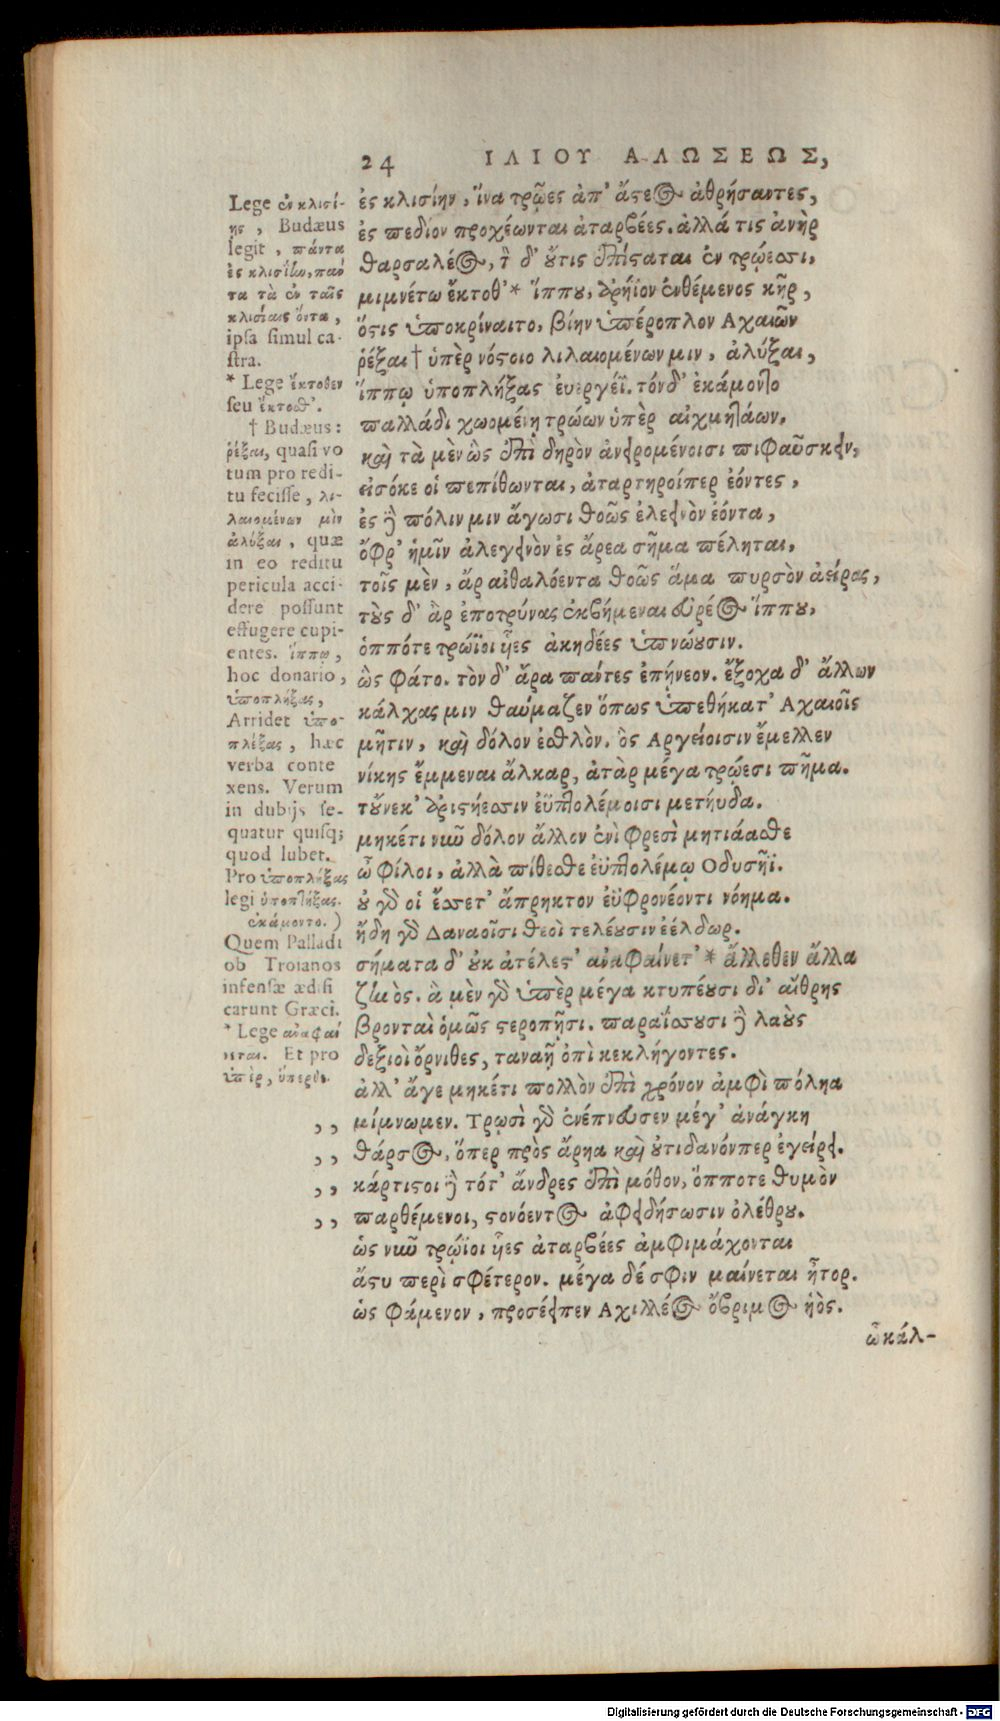 24 ΙΛΙΟΥ ΑΛΩΣΕΩΣ,
ἐς κλισίην, ἵνα τρῶες ἀπ' ἄστεος ἀθρήσαντες,
ἐς πεδίον προχέωνται ἀταρβέες. ἀλλά τις ἀνὴρ
θαρσαλέος, τ δ' οὔτις ἐπίσταται ἐν τρώεσσι,
μιμνέτω ἔκτοθ' * ἵππου, ἀρήϊον ἐνθέμενος κῆρ,
ὅστις ὑποκρίναιτο, βίην ὑπέροπλον Αχαιῶν
ῥέξαι † ὑπὲρ νόστοιο λιλαιομένων μιν, ἀλύξαι,
ἵππῳ ὑποπλήξας ἐυεργέϊ. τόνδ' ἐκάμοντο
παλλάδι χωομένῃ τρώων ὑπὲρ αἰχμητάων.
καὶ τὰ μὲν ὣς ἐπὶ δηρὸν ἀνειρομένοισι πιφαῦσκειν,
εἰσόκε οἱ πεπίθωνται, ἀταρτηροίπερ ἐόντες,
ἐς δὲ πόλιν μιν ἄγωσι θοῶς ἐλεεινὸν ἐόντα,
ὄφρ' ἡμῖν ἀλεγεινὸν ἐς ἄρεα σῆμα πέληται,
τοῖς μὲν, ἄρ αἰθαλόεντα θοῶς ἅμα πυρσὸν ἀείρας,
τοὺς δ' ἂρ ἐποτρύνας ἐκβήμεναι εὐρέος ἵππου,
ὁππότε τρώϊοι υἷες ἀκηδέες ὑπνώουσιν.
ὣς φάτο. τὸν δ' ἄρα πάντες ἐπῄνεον. ἔξοχα δ' ἄλλων
κάλχας μιν θαύμαζεν ὅπως ὑπεθήκατ' Αχαιοῖς
μῆτιν, καὶ δόλον ἐσθλὸν. ὃς Αργείοισιν ἔμελλεν
νίκης ἔμμεναι ἄλκαρ, ἀτὰρ μέγα τρώεσι πῆμα.
τοὔνεκ' ἀριστήεσσιν ἐϋπτολέμοισι μετηύδα.
μηκέτι νῦν δόλον ἄλλον ἐνὶ φρεσὶ μητιάασθε
ὦ φίλοι, ἀλλὰ πίθεσθε ἐϋπτολέμῳ Οδυσῆϊ.
οὐ γάρ οἱ ἔσσετ' ἄπρηκτον ἐϋφρονέοντι νόημα.
ἤδη γὰρ Δαναοῖσι θεοὶ τελέουσιν ἐέλδωρ.
σήματα δ' οὐκ ἀτέλεστ' ἀναφαίνετ' * ἄλλεθεν ἄλλα
ζίωὸς. ἃ μὲν γὰρ ὑπὲρ μέγα κτυπέουσι δι' αἴθρης
βρονταὶ ὁμῶς στεροπῇσι. παραΐσσουσι δὲ λαοὺς
δεξιοὶ ὄρνιθες, ταναῇ ὀπὶ κεκλήγοντες.
ἀλλ' ἄγε μηκέτι πολλὸν ἐπὶ χρόνον ἀμφὶ πόληα
,, μίμνωμεν. Τρωσὶ γὰρ ἐνέπνευσεν μέγ' ἀνάγκη
,, θάρσος, ὅπερ πρὸς ἄρηα καὶ οὐτιδανόνπερ ἐγείρει.
,, κάρτιστοι δὲ τότ' ἄνδρες ἐπὶ μόθον, ὅπποτε θυμὸν
,, παρθέμενοι, στονόεντος ἀφειδήσωσιν ὀλέθρου.
ὡς νῦν τρώϊοι υἷες ἀταρβέες ἀμφιμάχονται
ἄστυ περὶ σφέτερον. μέγα δέ σφιν μαίνεται ἦτορ.
ὡς φάμενον, προσέειπεν Αχιλλέος ὄβριμος υἱὸς.
ὦ κάλ-
Lege ἐν κλισί-
ης, Budæus
legit, πάντα
ἐς κλισίην, πάν
τα τὰ ἐν ταῖς
κλισίαις ὄντα,
ipsa simul ca-
stra.
* Lege ἔκτοθεν
seu ἔκτοσθ'.
† Budæus:
ῥέξαι, quasi vo
tum pro redi-
tu fecisse, λι-
λαιομένων μὶν
ἀλύξαι, quæ
in eo reditu
pericula acci-
dere possunt
effugere cupi-
entes. ἵππῳ,
hoc donario,
ὑποπλήξας,
Arridet ὑπο-
πλέξας, hæc
verba conte
xens. Verum
in dubijs se-
quatur quisq;
quod lubet.
Pro ὑποπλήξας
legi ὑποπτήξας.
ἐκάμοντο.)
Quem Palladi
ob Troianos
infensæ ædifi
carunt Græci.
* Lege ἀναφαί
νεται. Et pro
ὑπὲρ, ὕπερθε.
Digitalisierung gefördert durch die Deutsche Forschungsgemeinschaft - DFG